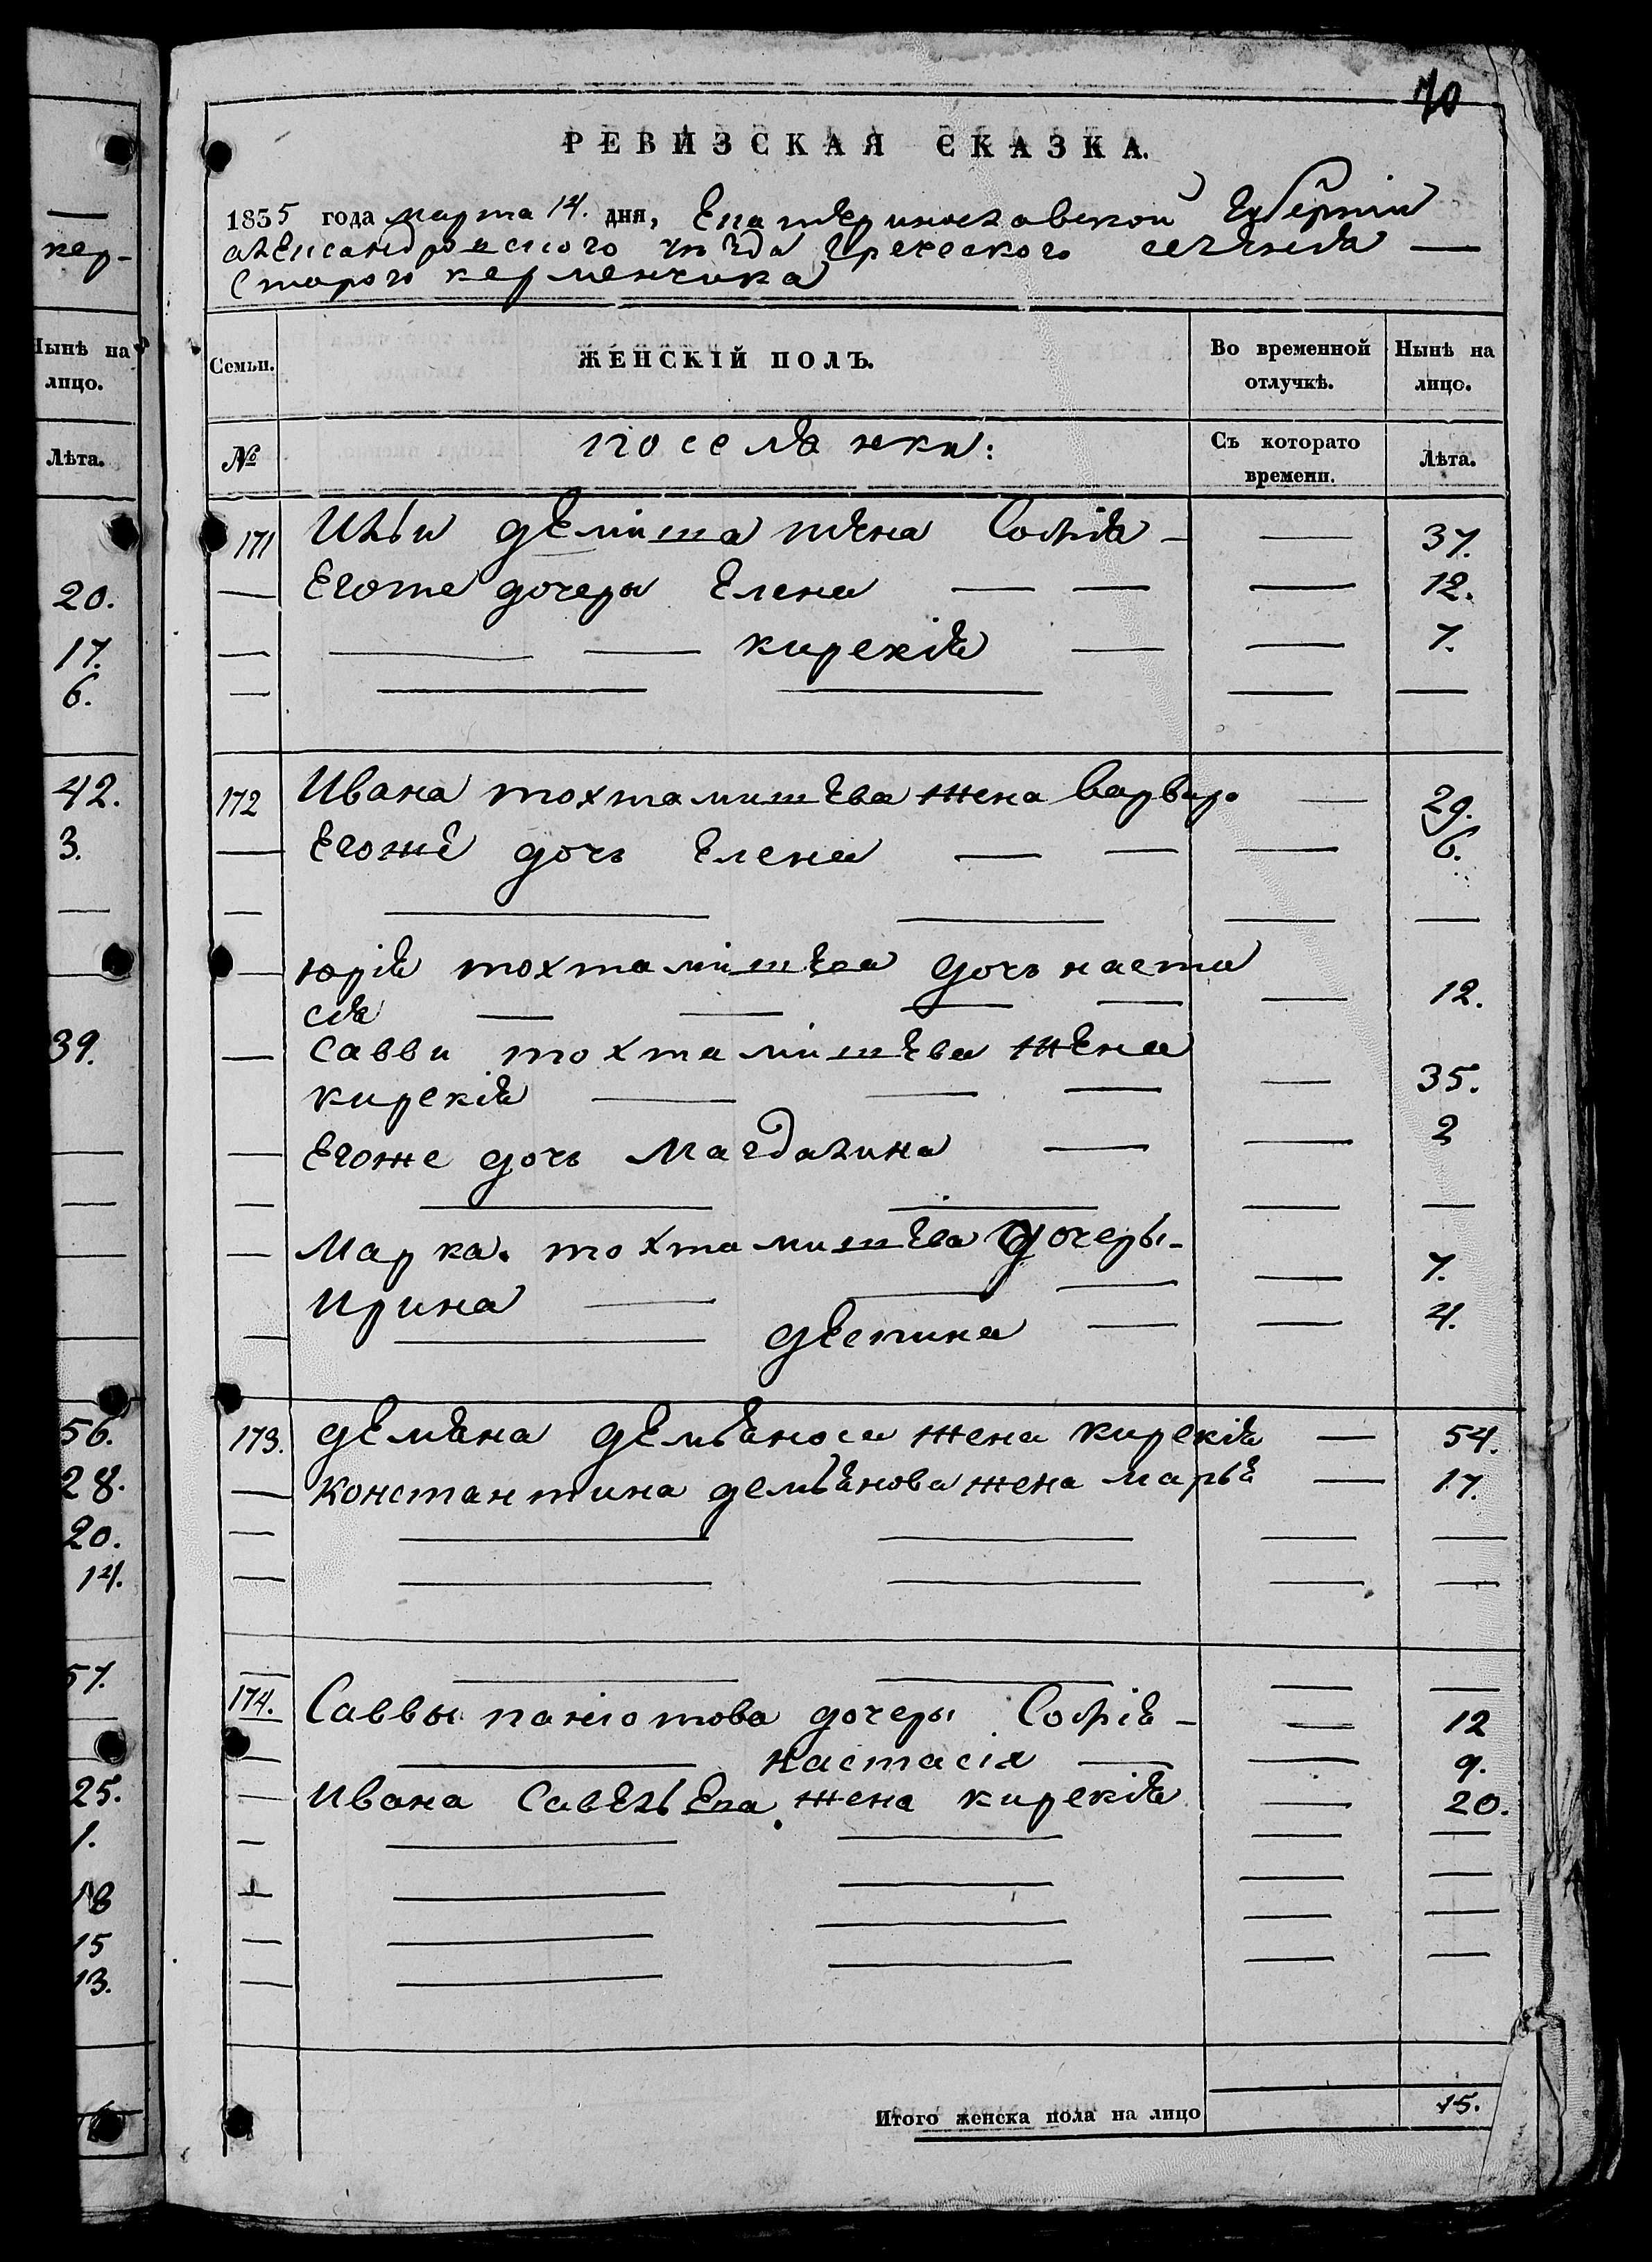 кер-
Нынѣ на
лицо.
Лѣта.
20.
17.
6.
42.
3.
39.
56.
28.
20.
14.
57.
25.
1.
18
15
13.
70
РЕВИЗСКАЯ СКАЗКА.
1835 года марта 14. дня, Екатериновлавской Губерніи
александровского уѣзда Греческого селенія —
Старого керменчика
Семьи. ЖЕНСКІЙ ПОЛЪ. Во временной отлучкѣ. Нынѣ на лицо.
№ поселянки: Съ котораго времени. Лѣта.
171 Ильи деміша жена Софія - — 37.
— Егоже дочеры Елена — — — 12.
— — — кирекія — — 7.
— — — — —
172 Ивана тохтамишева жена варвар. — 29.
— Егоже дочь Елена — — — 6.
— — — — —
— юрія тохтамишева дочь наста
сія — — — — — 12.
— савви тохтамишева жена
кирекія — — — — 35.
— Егоже дочь Магдалина — — 2
— — — — —
— Марка. тохтамишева дочеры-
Ирина — — — — 7.
— — деспина — — 4.
173. демяна демьяноса жена кирекія — 54.
— константина демьянова жена марья — 17.
— — — — —
— — — — —
— — — — —
174. Саввы паніотова дочеры Софія - — 12
— — настасія — — 9.
— Ивана Савельева жена кирекія — 20.
— — — — —
— — — — —
— — — — —
— — — — —
Итого женска пола на лицо 15.